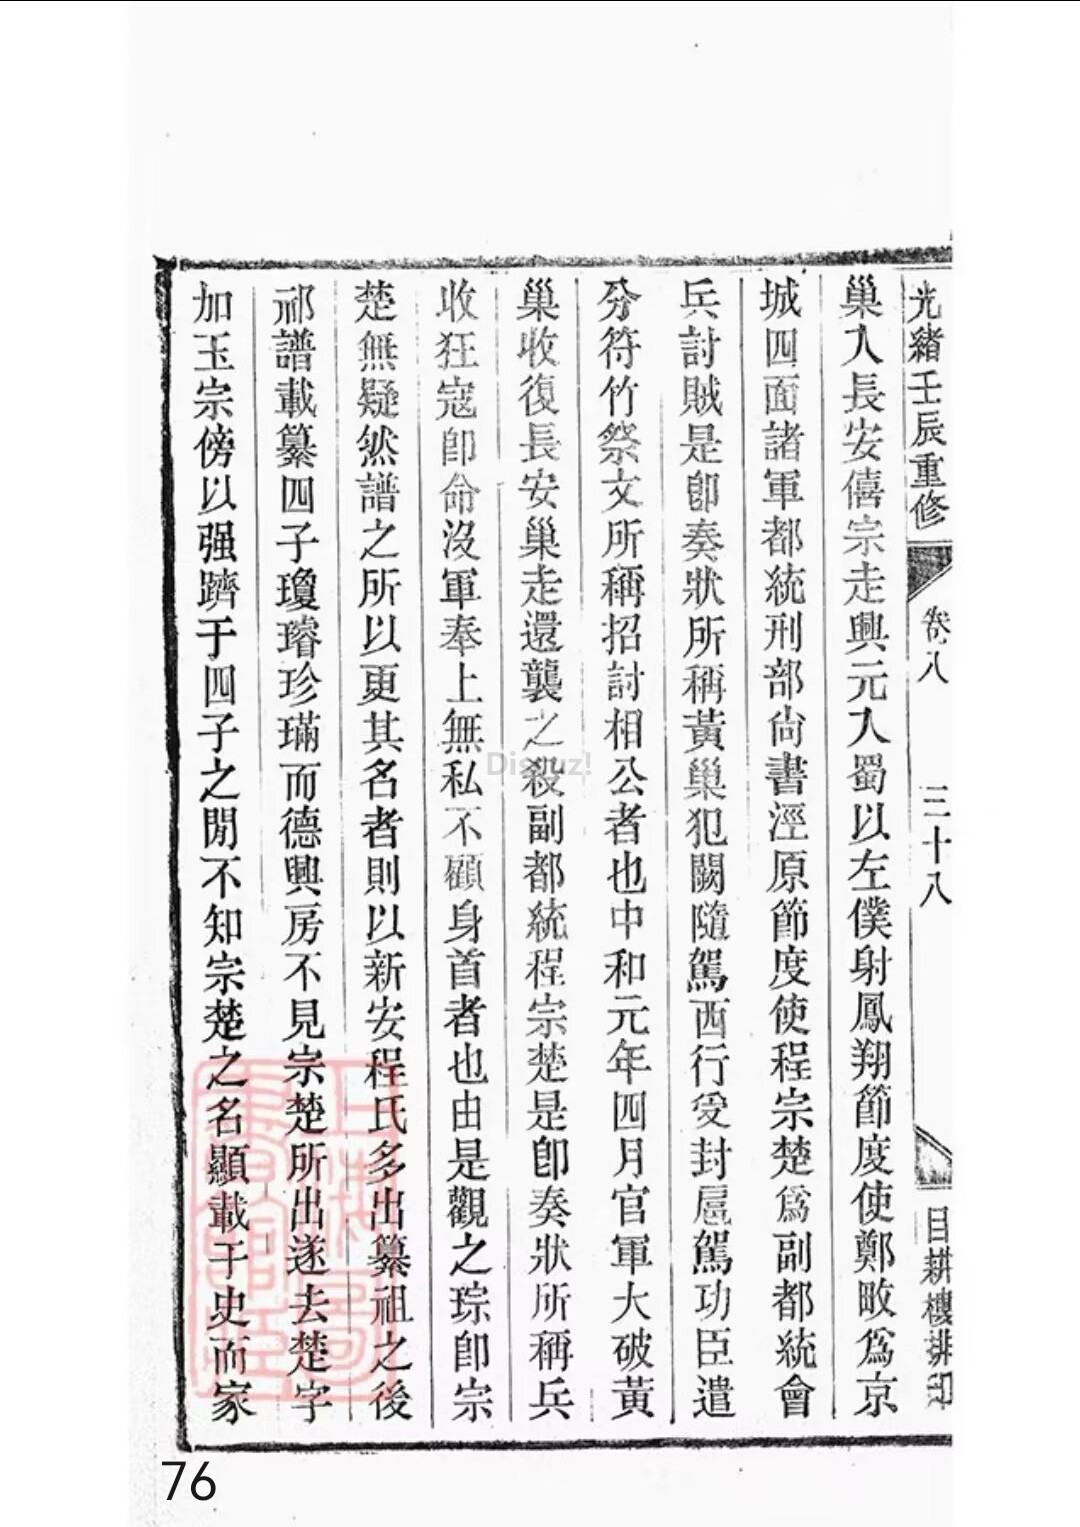 光緒壬辰重修
卷八
三十八
目耕樓排印
巢入長安僖宗走興元入蜀以左僕射鳳翔節度使鄭畋爲京
城四面諸軍都統刑部尙書涇原節度使程宗楚爲副都統會
兵討賊是卽奏狀所稱黃巢犯闕隨駕西行受封扈駕功臣遣
分符竹祭文所稱招討相公者也中和元年四月官軍大破黃
巢收復長安巢走還襲之殺副都統程宗楚是卽奏狀所稱兵
收狂寇卽命沒軍奉上無私不顧身首者也由是觀之琮卽宗
楚無疑然譜之所以更其名者則以新安程氏多出纂祖之後
祁譜載纂四子瓊璿珍璊而德興房不見宗楚所出遂去楚字
加玉宗傍以强躋于四子之閒不知宗楚之名顯載于史而家
上海圖書館藏
Discuz!
76